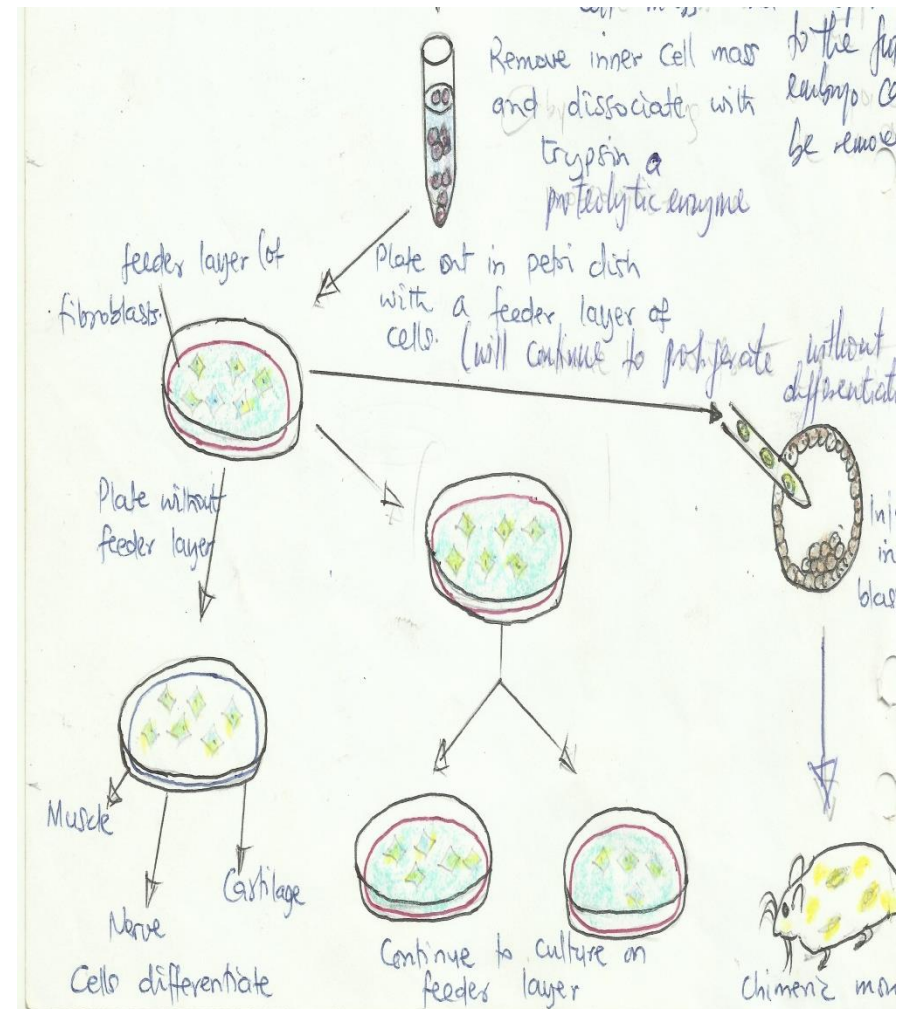 Remove inner cell mass
and dissociate with
trypsin a
proteolytic enzyme
to the
embryo
be remove
feeder layer (of
fibroblasts.
Plate out in petri dish
with a feeder layer of
cells. (will continue to
without
Plate without
feeder layer
in
Muscle
Nerve
Cartilage
Cells differentiate
Continue to culture on
feeder layer
Chimeric